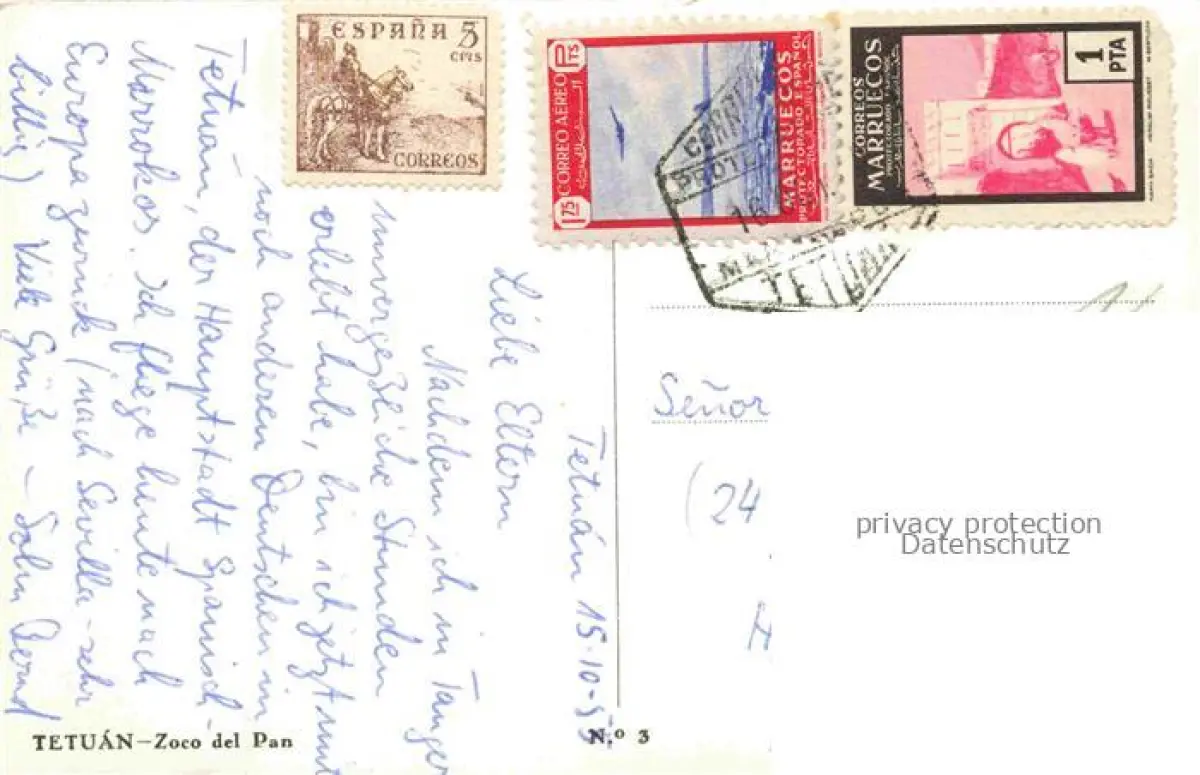 ESPAÑA 5
CTS
CORREOS
CORREO AEREO
1,75 PTS
MARRUECOS
PROTECTORADO ESPAÑOL
CORREOS
MARRUECOS
PROTECTORADO ESPAÑOL
1
PTA
TETUAN
Tetuán 15-10-53.
Liebe Eltern
Nachdem ich in Tanger
unvergeßliche Stunden
erlebt habe, bin ich jetzt mit
noch anderen Deutschen in
Tetuán, der Hauptstadt Spanisch-
Marrokos. Ich fliege heute nach
Europa zurück (nach Sevilla - sehr
billig) Viele Grüße - Sohn Bernd
Señor
(24
privacy protection
Datenschutz
TETUÁN—Zoco del Pan
N.º 3